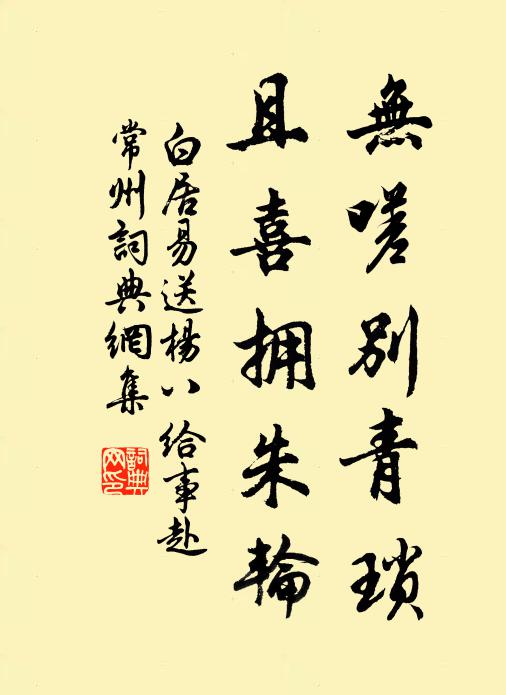 無嗟別青瑣
且喜拥朱輪
白居易送楊八给事赴
常州詞典網集
詞典网印